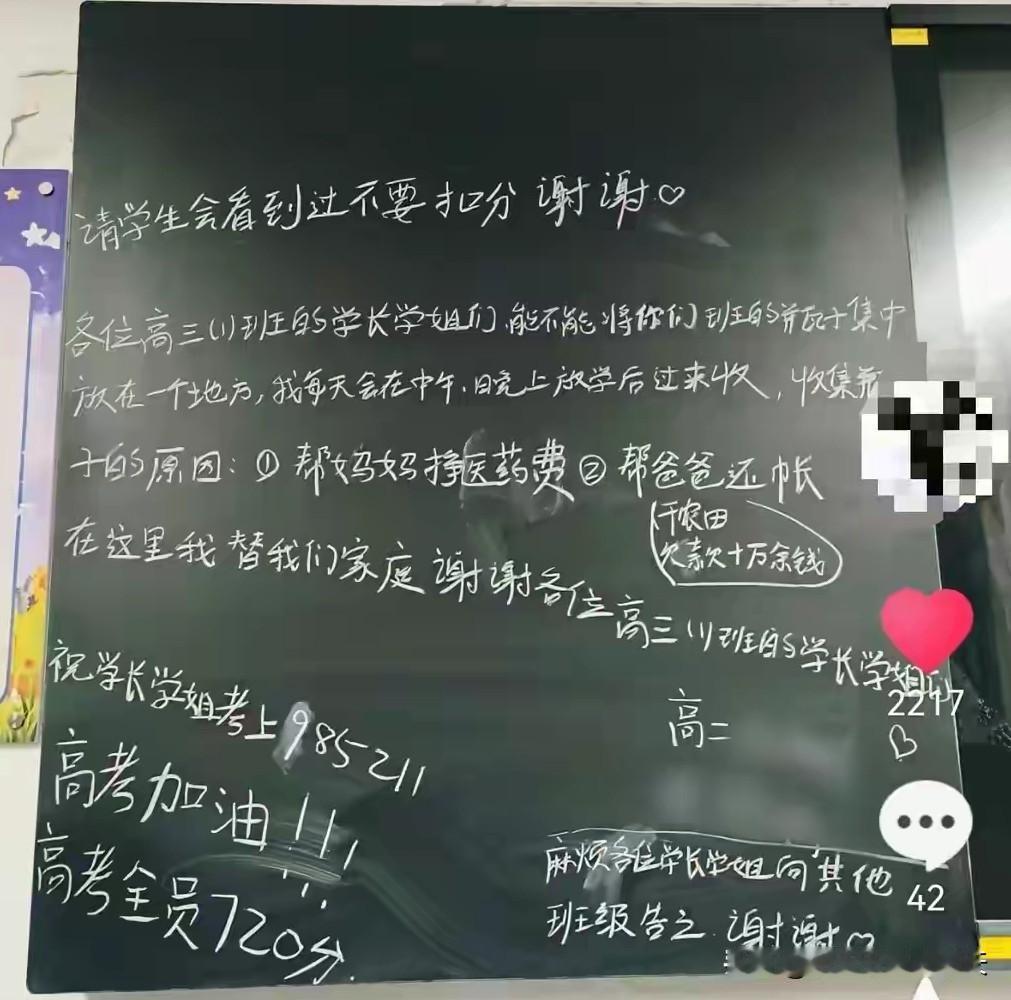 请学生会看到过不要扣分 谢谢♡
各位高三(1)班的学长学姐们,能不能将你们班的并瓦子集中
放在一个地方,我每天会在中午、晚上放学后过来收,收集瓶
子的原因:① 帮妈妈挣医药费 ② 帮爸爸还帐
干农田
欠款十万余钱
在这里我替我们家庭谢谢各位高三(1)班的学长学姐们
祝学长学姐考上985 211
高二
♡
高考加油!!!!!
高考全员720分.
麻烦各位学长学姐向其他
班级告之 谢谢♡
2217
42